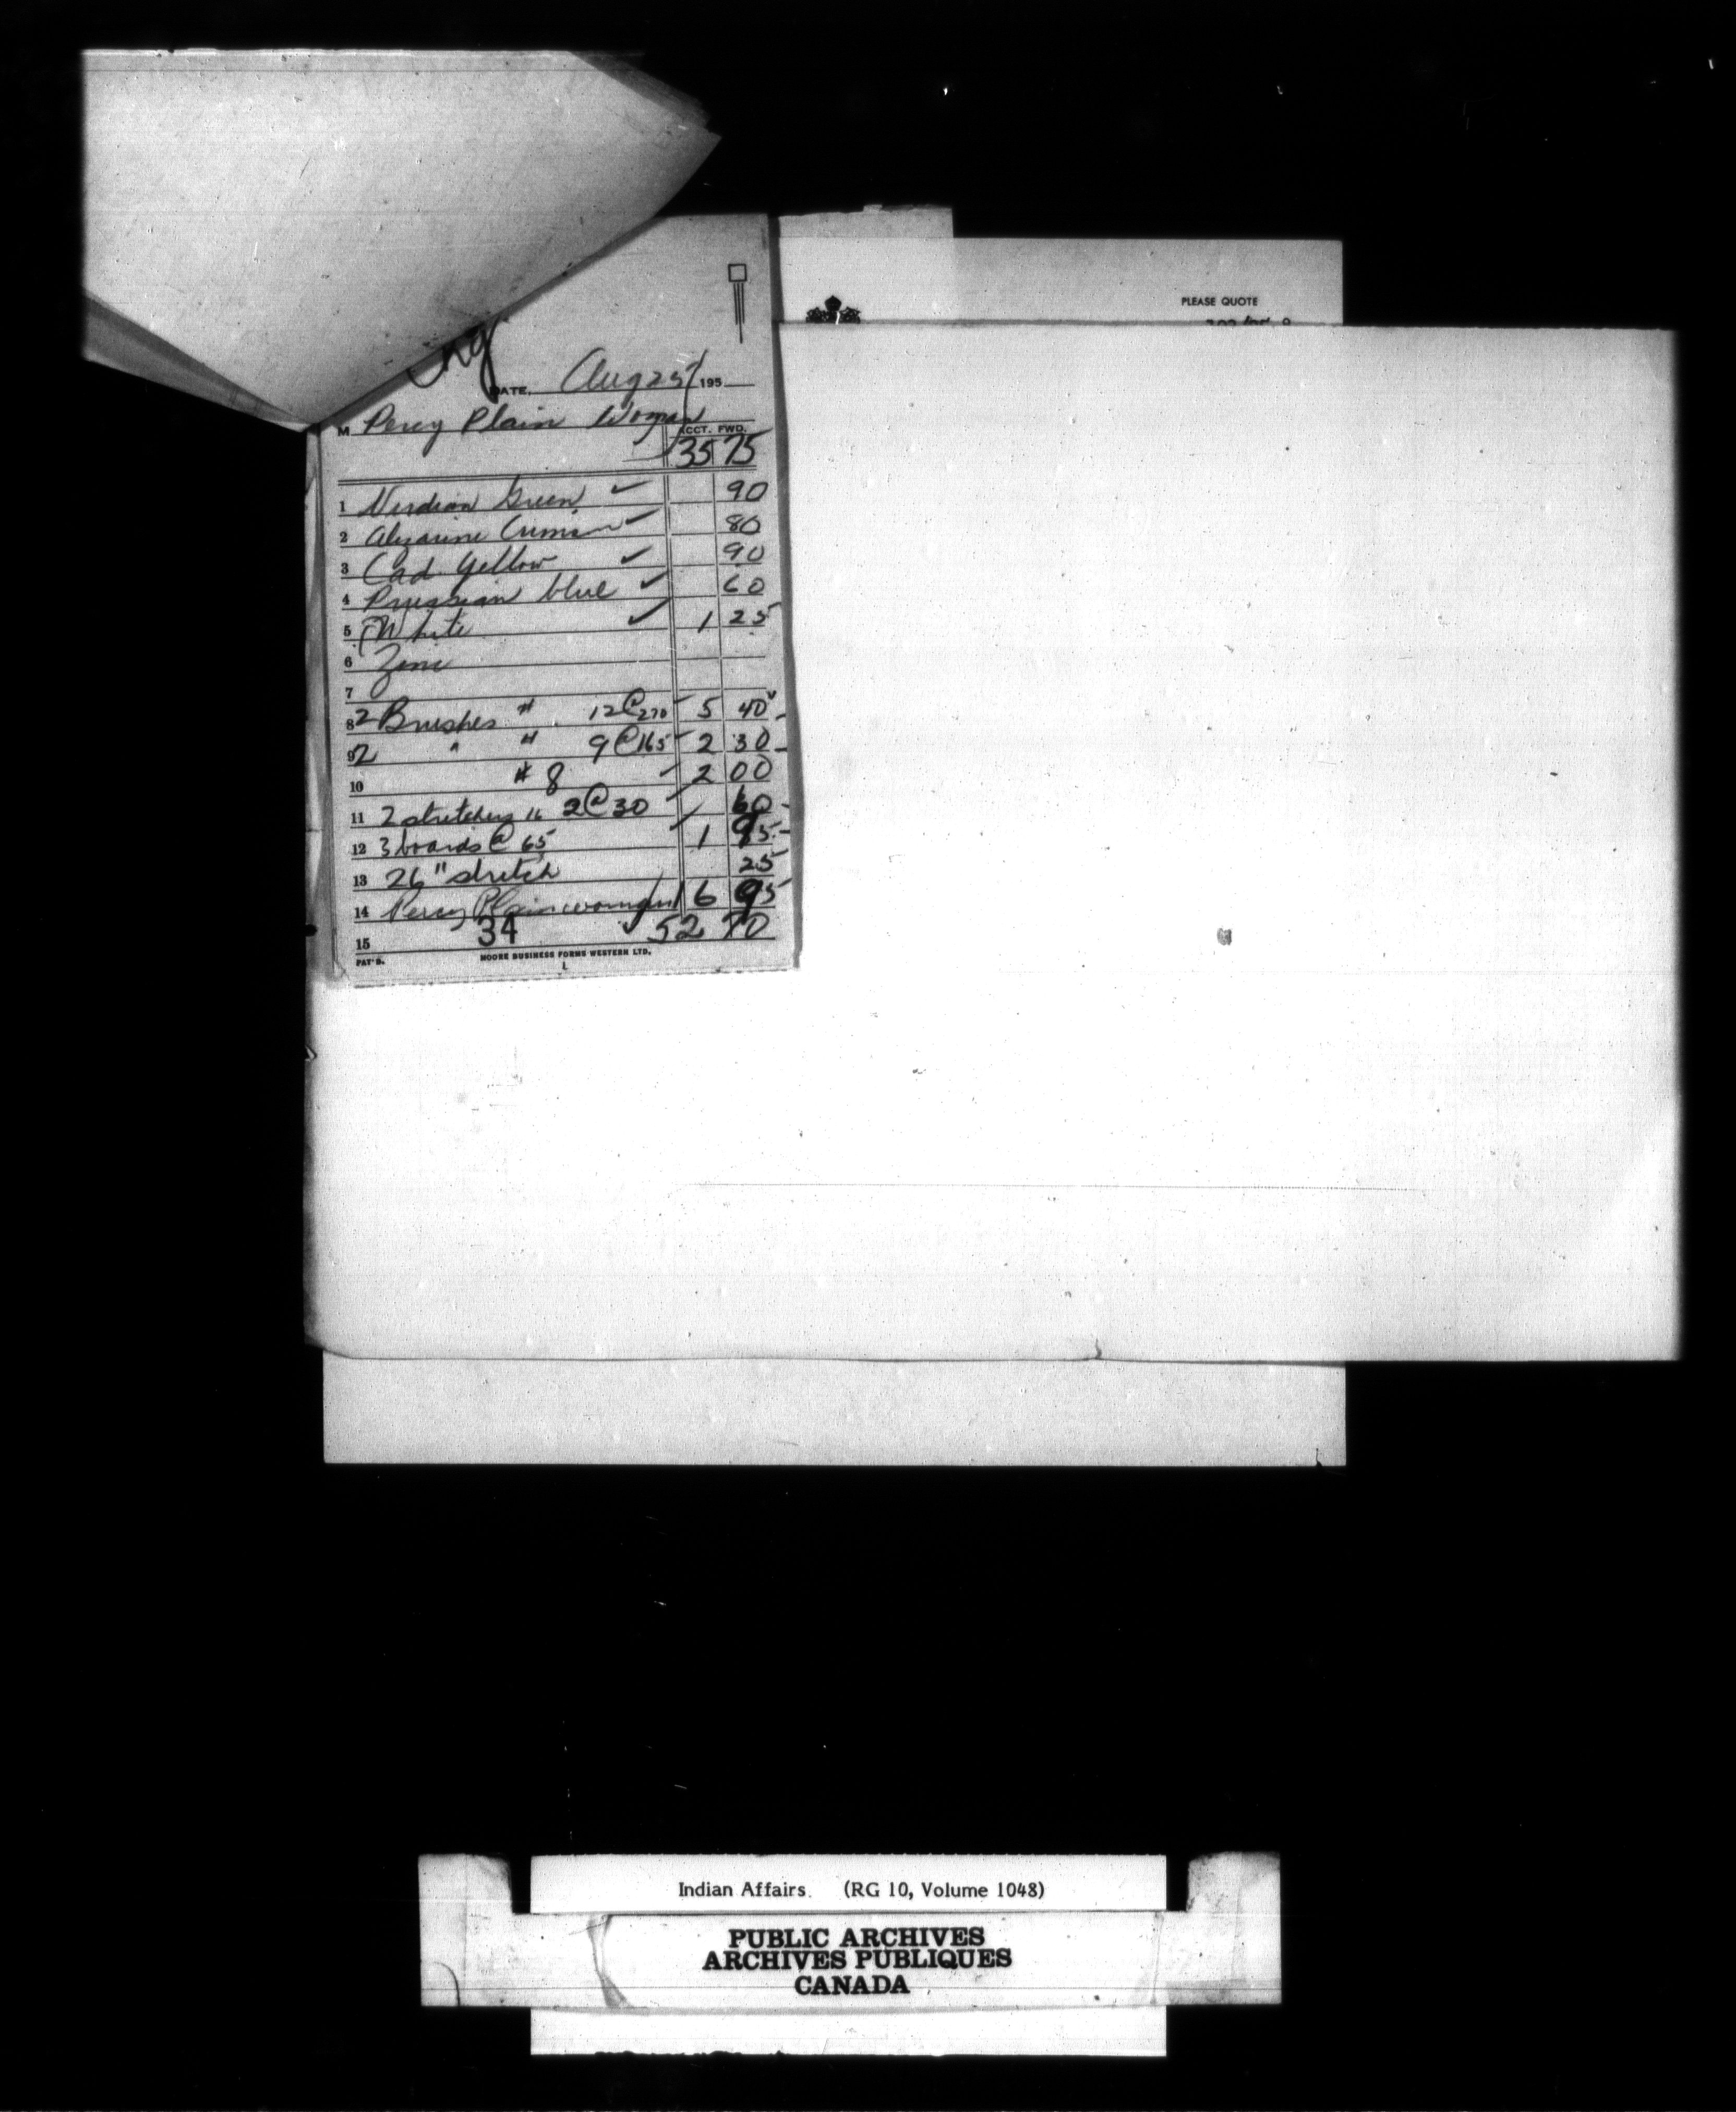 PLEASE QUOTE
DATE. Aug 25 195
M Percy Plain Woman
ACCT. FWD.
35 75
1 Virdian Green ✓ 90
2 Alizarine Crimson ✓ 80
3 Cad. Yellow ✓ 90
4 Prussian blue ✓ 60
5 White ✓ 1 25
6 Zinc
7
8 2 Brushes # 12 @ 270 5 40
9 2 " # 9 @ 165 2 30
10 # 8 ✓ 2 00
11 2 stretchers 16 2 @ 30 60
12 3 boards @ 65 1 95
13 26" stretch 25
14 Percy Plainwoman 16 95
15 34 ✓ 52 70
PAT'D. MOORE BUSINESS FORMS WESTERN LTD.
Indian Affairs. (RG 10, Volume 1048)
PUBLIC ARCHIVES
ARCHIVES PUBLIQUES
CANADA